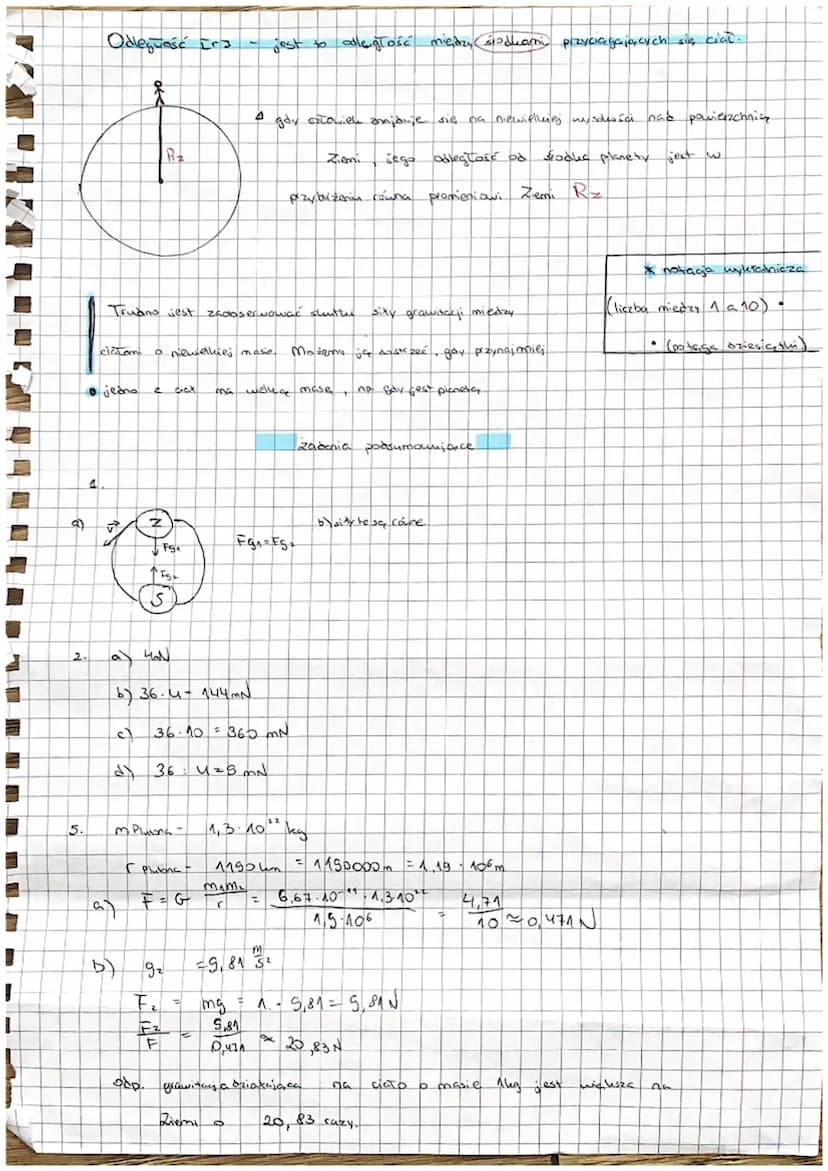 Odległość [r] - jest to odległość między środkami przyciągających się ciał.
Rz
gdy człowiek znajduje się na niewielkiej wysokości nad powierzchnią
Ziemi, jego odległość od środka planety jest w
przybliżeniu równa promieniowi Ziemi Rz
* notacja wykładnicza
(liczba między 1 a 10) •
• (potęga dziesiątki)
Trudno jest zaobserwować skutki siły grawitacji między
ciałami o niewielkiej masie. Możemy ją dostrzec, gdy przynajmniej
jedno z ciał ma wielką masę, np. gdy jest planetą
zadania podsumowujące
1.
a)
v
Z
Fg1
Fg2
S
Fg1=Fg2
b) siły te są równe
2. a) 4mN
b) 36·4= 144mN
c) 36·10 = 360 mN
d) 36 : 4=9 mN
5. m Plutona - 1,3·10²² kg
r plutona - 1190 km = 1190000m = 1,19 · 10⁶m
a) F = G m₁m₂/r = 6,67·10⁻¹¹·1,3·10²²/1,9·10⁶ = 4,71/10 ≈ 0,471 N
b) gz = 9,81 m/s²
Fz = mg = 1 · 9,81 = 9,81 N
Fz/F = 9,81/0,471 ≈ 20,83N
odp. grawitacja działająca na ciało o masie 1kg jest większa na
Ziemi o 20,83 razy.